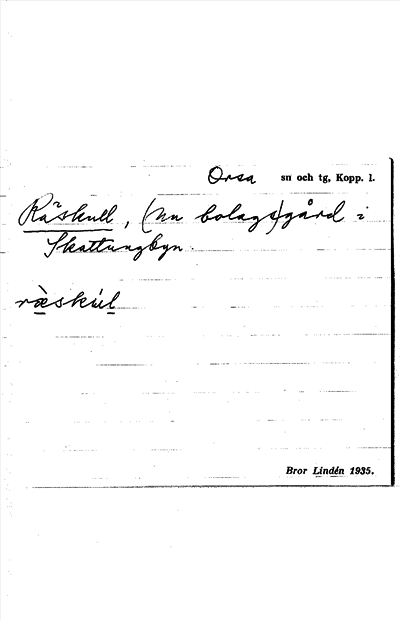 Orsa sn och tg, Kopp. l.
Råskull, (nu bolags)gård i
Skattungbyn.
ræskul
Bror Lindén 1935.